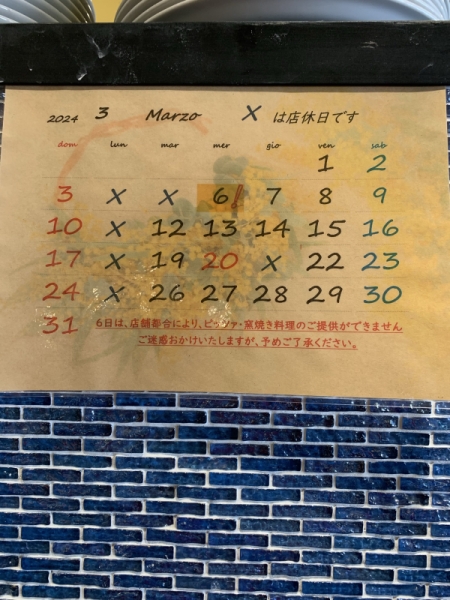 2024 3 Marzo X は店休日です
dom lun mar mer gio ven sab
1 2
3 X X 6! 7 8 9
10 X 12 13 14 15 16
17 X 19 20 X 22 23
24 X 26 27 28 29 30
31 6日は、店舗都合により、ピッツァ・窯焼き料理のご提供ができません
ご迷惑おかけいたしますが、予めご了承ください。